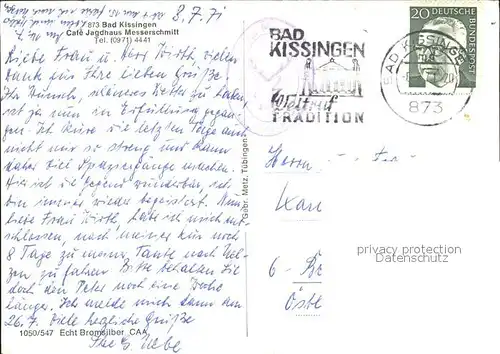 873 Bad Kissingen
Café Jagdhaus Messerschmitt
Tel. (0971) 4441
8.7.71
Liebe Frau u. Herr Wirth, vielen
Dank für Ihre lieben Grüße.
Ihr Wunsch, schöneres Wetter zu haben,
ist ja nun in Erfüllung gegan-
gen. Ich kure die letzten Tage auch
nicht mehr so streng und kann
daher viel Spaziergänge machen.
Hier ist die Gegend wunderbar, ich
bin immer wieder begeistert. Nun
liebe Frau Wirth, habe ich mich ent-
schlossen, nach meiner Kur noch
8 Tage zu meiner Tante nach
zu fahren. Bitte behalten Sie
doch den Peter noch eine Woche
länger. Ich melde mich dann den
26.7. Viele herzliche Grüße
Ihre G.
1050/547 Echt Bromsilber CAA
Gebr. Metz, Tübingen
BAD
KISSINGEN
Weltruf
TRADITION
BAD KISSINGEN
873
20
DEUTSCHE
BUNDESPOST
Herrn
Karl
6
privacy protection
Datenschutz